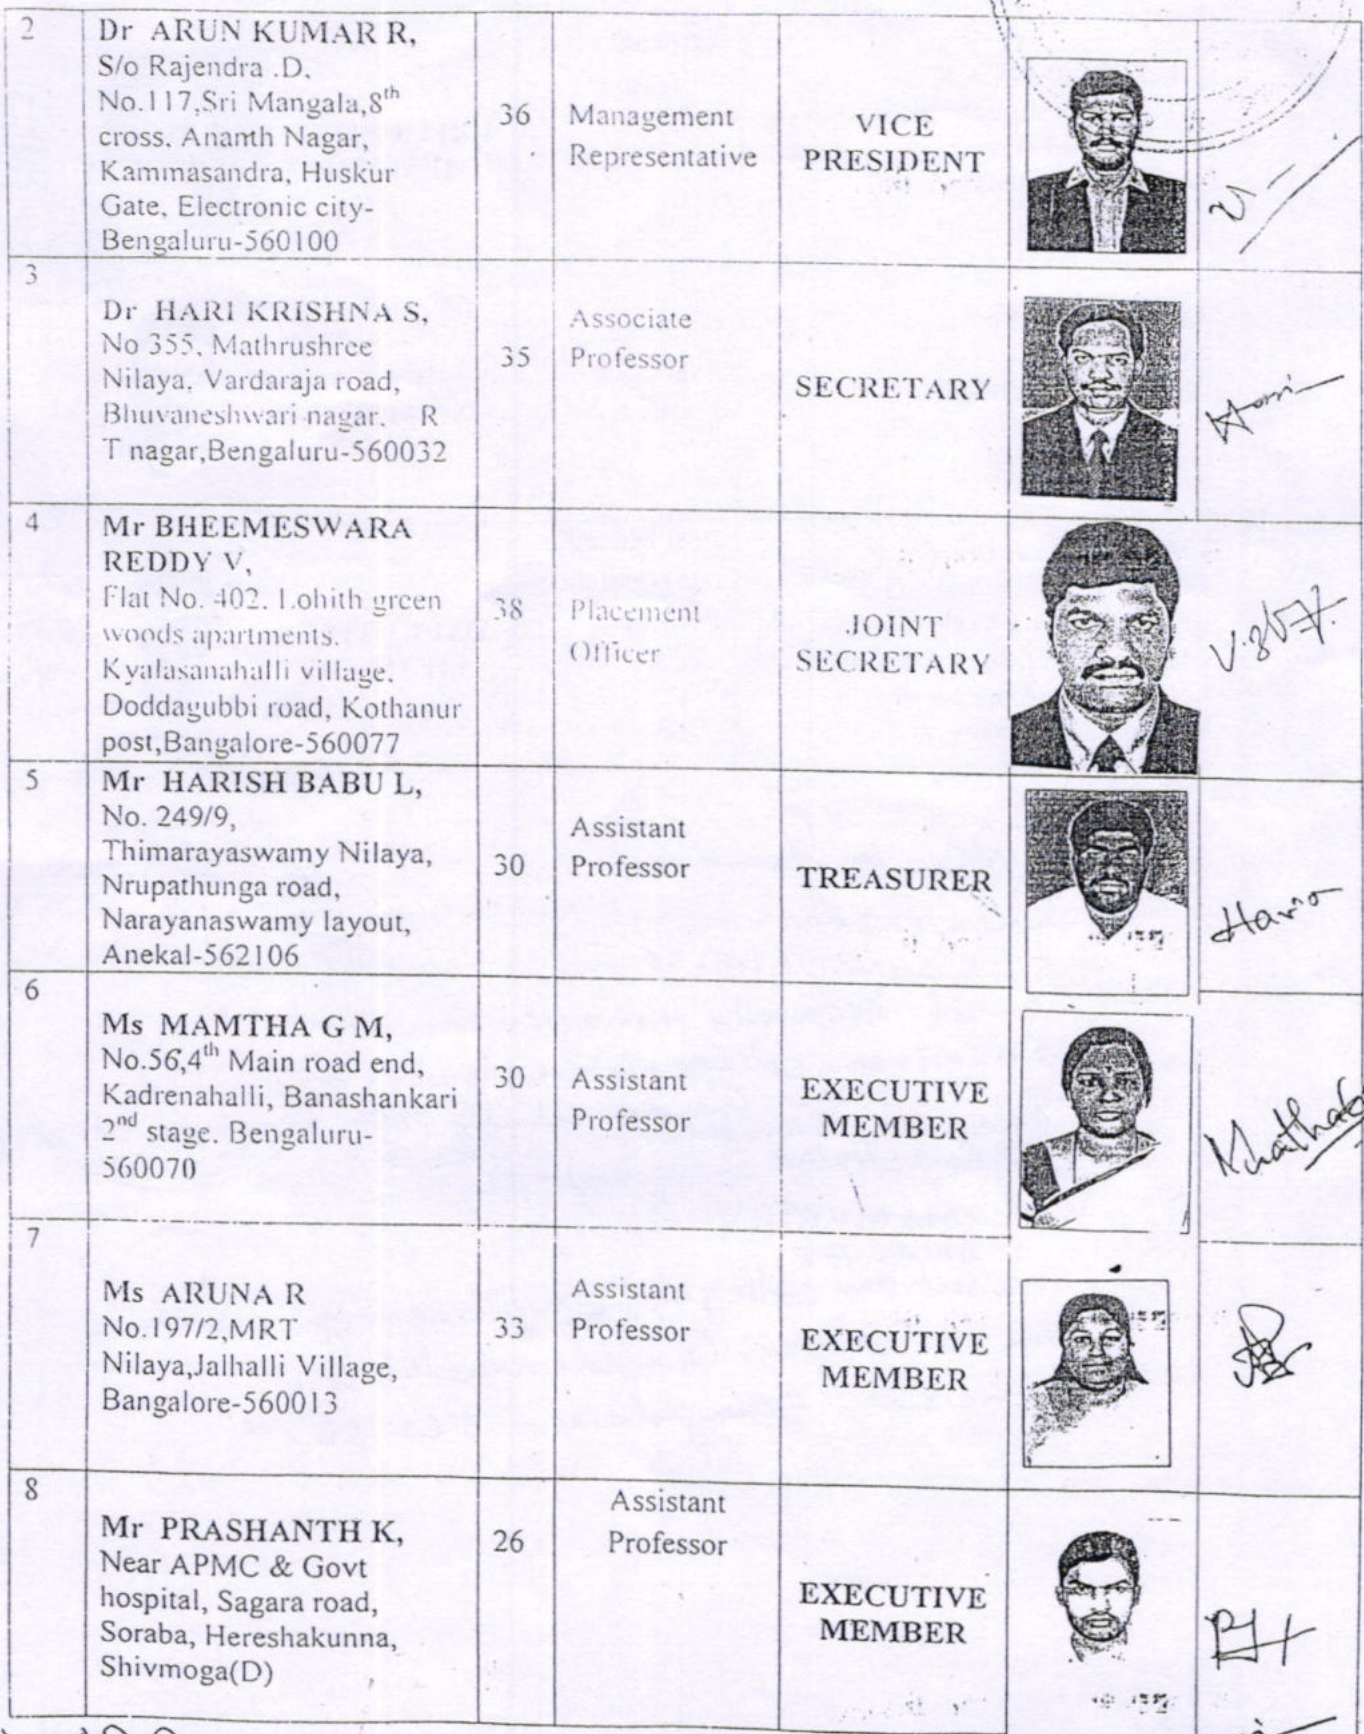 2
Dr ARUN KUMAR R,
S/o Rajendra .D,
No.117,Sri Mangala,8th
cross, Ananth Nagar,
Kammasandra, Huskur
Gate, Electronic city-
Bengaluru-560100
36
Management
Representative
VICE
PRESIDENT
3
Dr HARI KRISHNA S,
No 355, Mathrushree
Nilaya, Vardaraja road,
Bhuvaneshwari nagar, R
T nagar,Bengaluru-560032
35
Associate
Professor
SECRETARY
4
Mr BHEEMESWARA
REDDY V,
Flat No. 402. Lohith green
woods apartments.
Kyalasanahalli village.
Doddagubbi road, Kothanur
post,Bangalore-560077
38
Placement
Officer
JOINT
SECRETARY
5
Mr HARISH BABU L,
No. 249/9,
Thimarayaswamy Nilaya,
Nrupathunga road,
Narayanaswamy layout,
Anekal-562106
30
Assistant
Professor
TREASURER
6
Ms MAMTHA G M,
No.56,4th Main road end,
Kadrenahalli, Banashankari
2nd stage. Bengaluru-
560070
30
Assistant
Professor
EXECUTIVE
MEMBER
7
Ms ARUNA R
No.197/2,MRT
Nilaya,Jalhalli Village,
Bangalore-560013
33
Assistant
Professor
EXECUTIVE
MEMBER
8
Mr PRASHANTH K,
Near APMC & Govt
hospital, Sagara road,
Soraba, Hereshakunna,
Shivmoga(D)
26
Assistant
Professor
EXECUTIVE
MEMBER